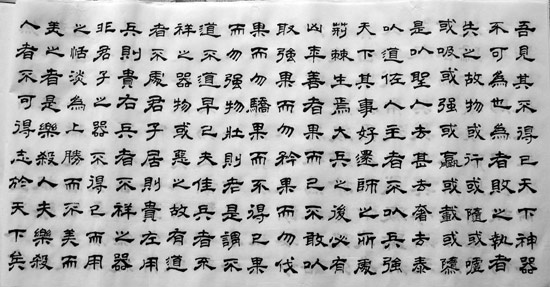 吾見其不得已天下神器
不可為也為者敗之執者
失之故物或行或隨或噓
或吸或强或羸或載或隳
是以聖人去甚去奢去泰
以道佐人主者不以兵強
天下其事好還師之所處
荊棘生焉大兵之後必有
凶年善者果而已不敢以
取強果而勿矜果而勿伐
果而勿驕果而不得已果
而勿强物壯則老是謂不
道不道早已夫佳兵者不
祥之器物或惡之故有道
者不處君子居則貴左用
兵則貴右兵者不祥之器
非君子之器不得已而用
之恬淡為上勝而不美而
美之者是樂殺人夫樂殺
人者不可得志於天下矣